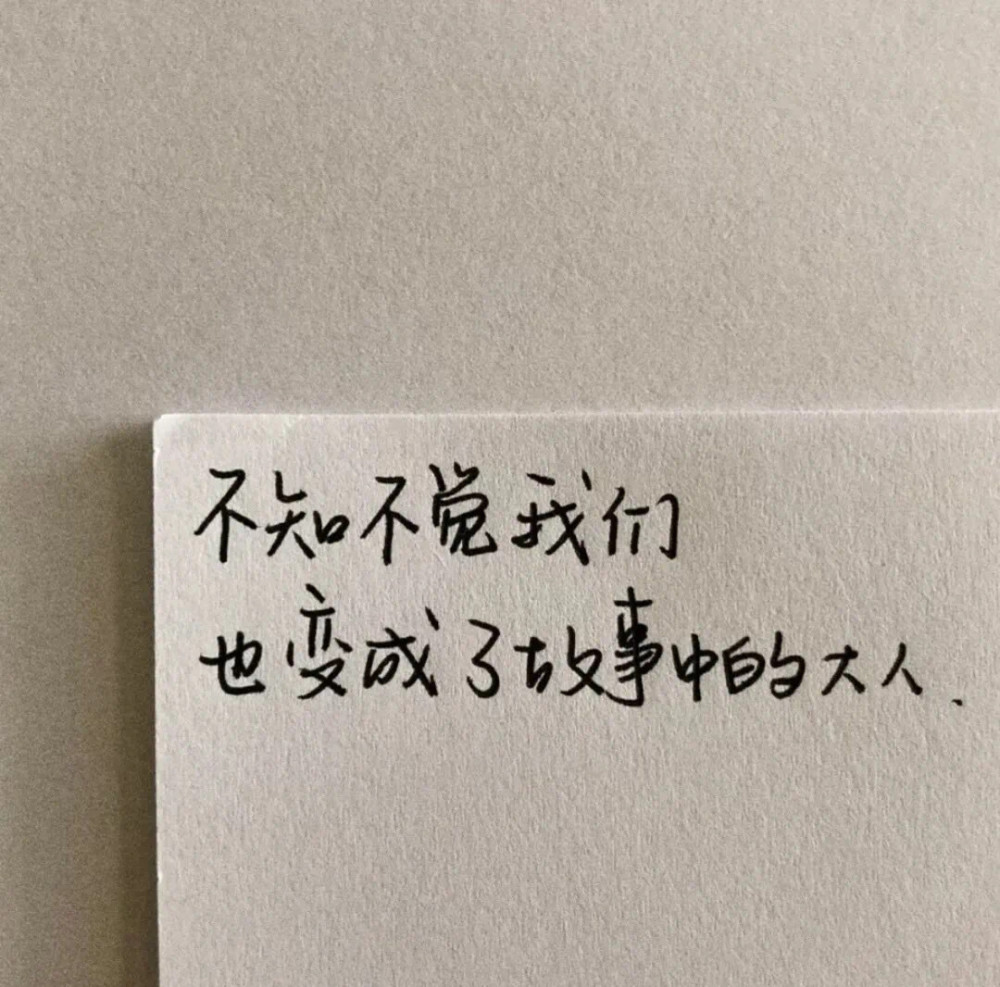 不知不觉我们
也变成了故事中的大人.